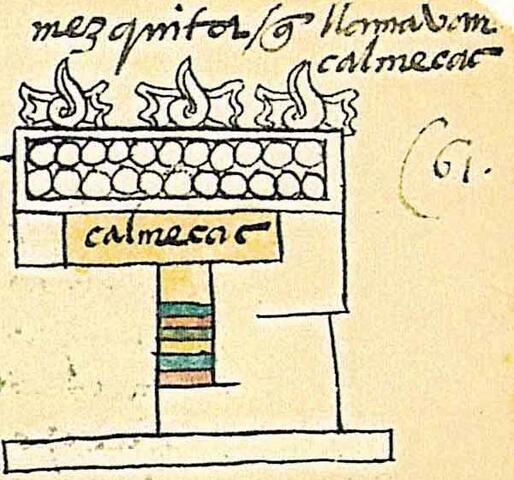 mezquita / q̃ llamavan
calmecac
61.
calmecac